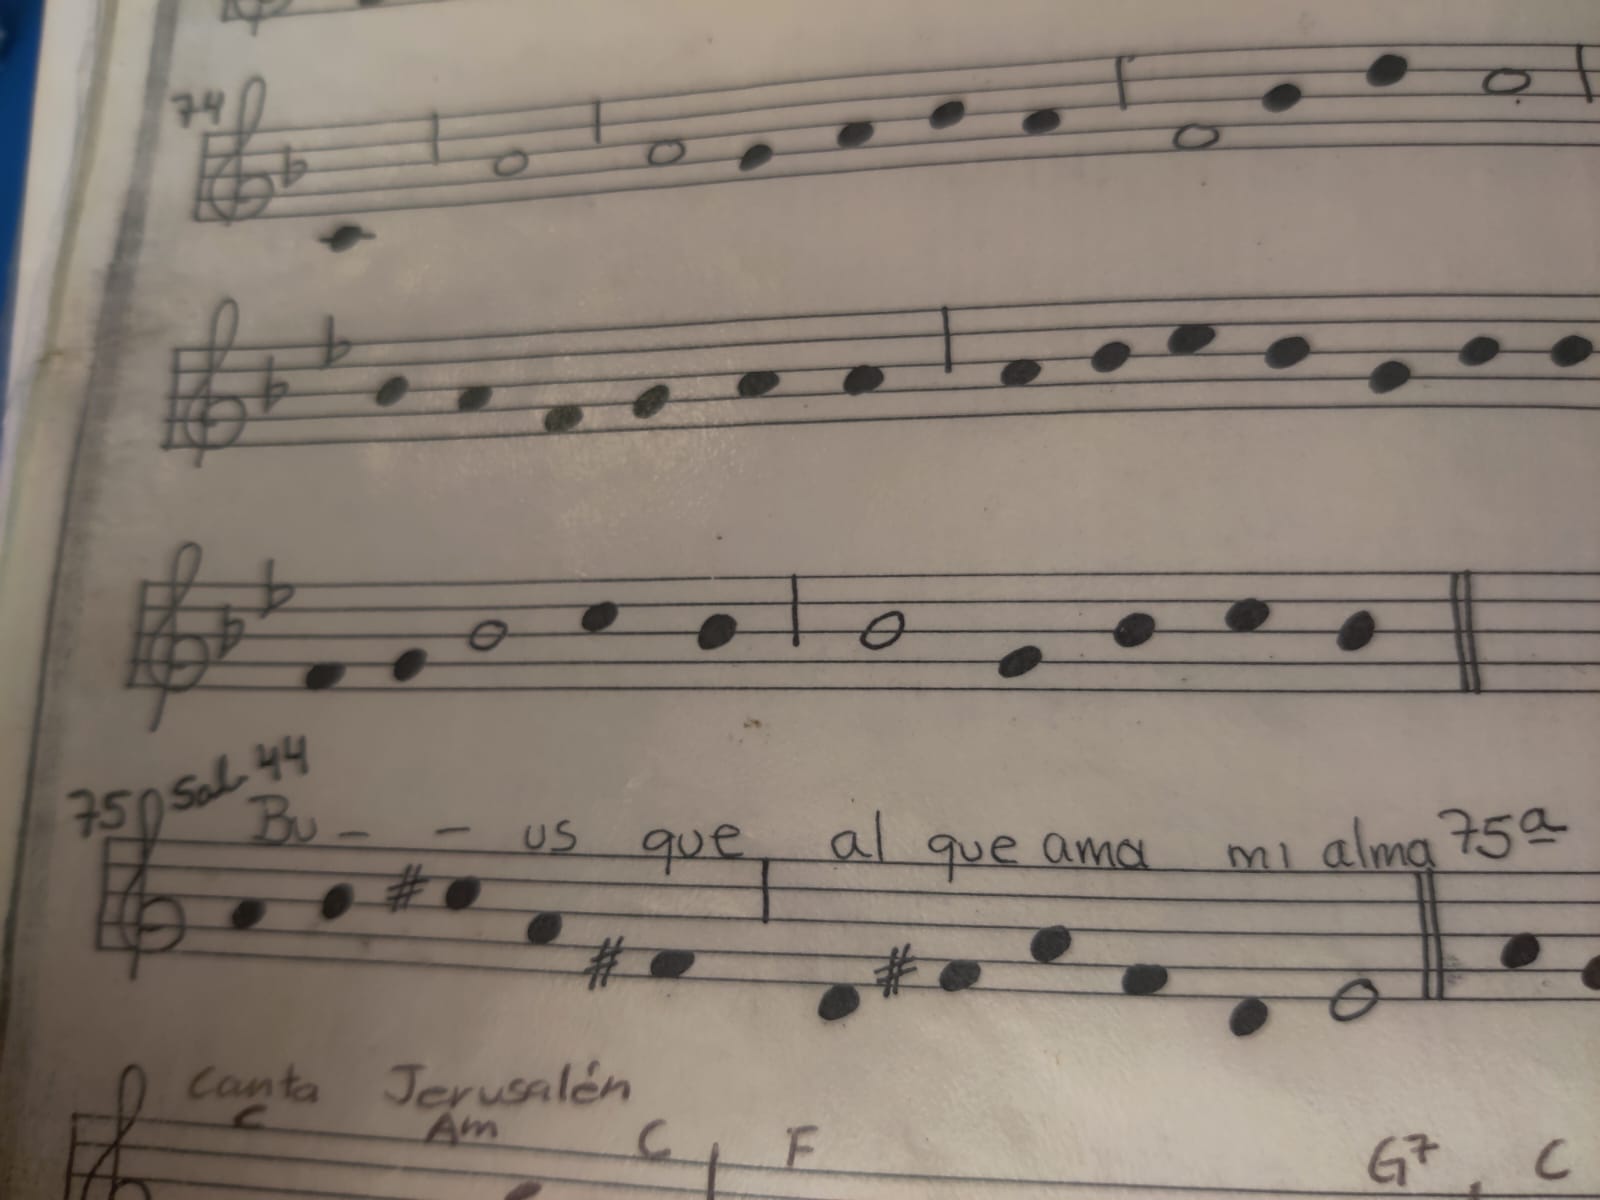 74
75 Sal. 44
Bu - - us que al que ama mi alma 75ª
Canta Jerusalén
C Am C F G7 C